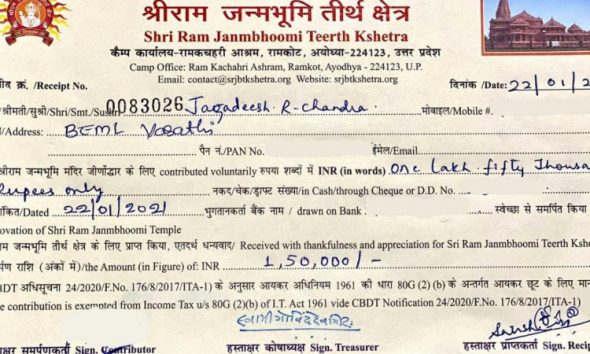 श्रीराम जन्मभूमि तीर्थ क्षेत्र
Shri Ram Janmbhoomi Teerth Kshetra
कैम्प कार्यालय-रामकचहरी आश्रम, रामकोट, अयोध्या-224123, उत्तर प्रदेश
Camp Office: Ram Kachahri Ashram, Ramkot, Ayodhya - 224123, U.P.
Email: contact@srjbtkshetra.org Website: srjbtkshetra.org
ीद क्रं. /Receipt No. दिनांक /Date: 22/01/2
श्रीमती/सुश्री/Shri/Smt./Sushri 0083026 Jagadeesh R-Chandra मोबाइल/Mobile #.
/Address: BEML
पैन नं./PAN No. ईमेल/Email.
श्रीराम जन्मभूमि मंदिर जीर्णोद्धार के लिए contributed voluntarily रुपया शब्दों में INR (in words) One lakh fifty Thousa
Rupees only नकद/चेक/ड्राफ्ट संख्या/in Cash/through Cheque or D.D. No.
ंकित/Dated 22/01/2021 भुगतानकर्ता बैंक नाम / drawn on Bank स्वेच्छा से समर्पित किया
ovation of Shri Ram Janmbhoomi Temple
म जन्मभूमि तीर्थ क्षेत्र के लिए प्राप्त किया, एतदर्थ धन्यवाद/ Received with thankfulness and appreciation for Sri Ram Janmbhoomi Teerth Kshe
र्पण राशि (अंकों में)/the Amount (in Figure) of: INR 1,50,000/-
BDT अधिसूचना 24/2020/F.No. 176/8/2017/ITA-1) के अनुसार आयकर अधिनियम 1961 की धारा 80G (2) (b) के अन्तर्गत आयकर छूट के लिए मान
e contribution is exempted from Income Tax u/s 80G (2)(b) of I.T. Act 1961 vide CBDT Notification 24/2020/F.No. 176/8/2017/ITA-1)
स्वामी गोविंददेव गिरि
ाक्षर समर्पणकर्ता Sign. Contributor हस्ताक्षर कोषाध्यक्ष Sign. Treasurer हस्ताक्षर प्राप्तकर्ता Sign. Recip